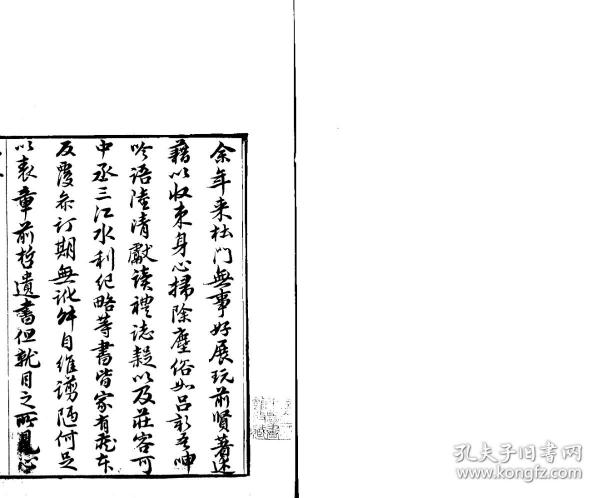 余年来杜门無事好展玩前賢著述
藉以收束身心掃除塵俗如呂新吾呻
吟语陸清獻读禮志疑以及莊容可
中丞三江水利纪略等書皆家有藏本
反覆参订期無訛舛自维谫陋何足
以表章前哲遺書但就目之所見心
孔夫子旧书网
kongfz.com